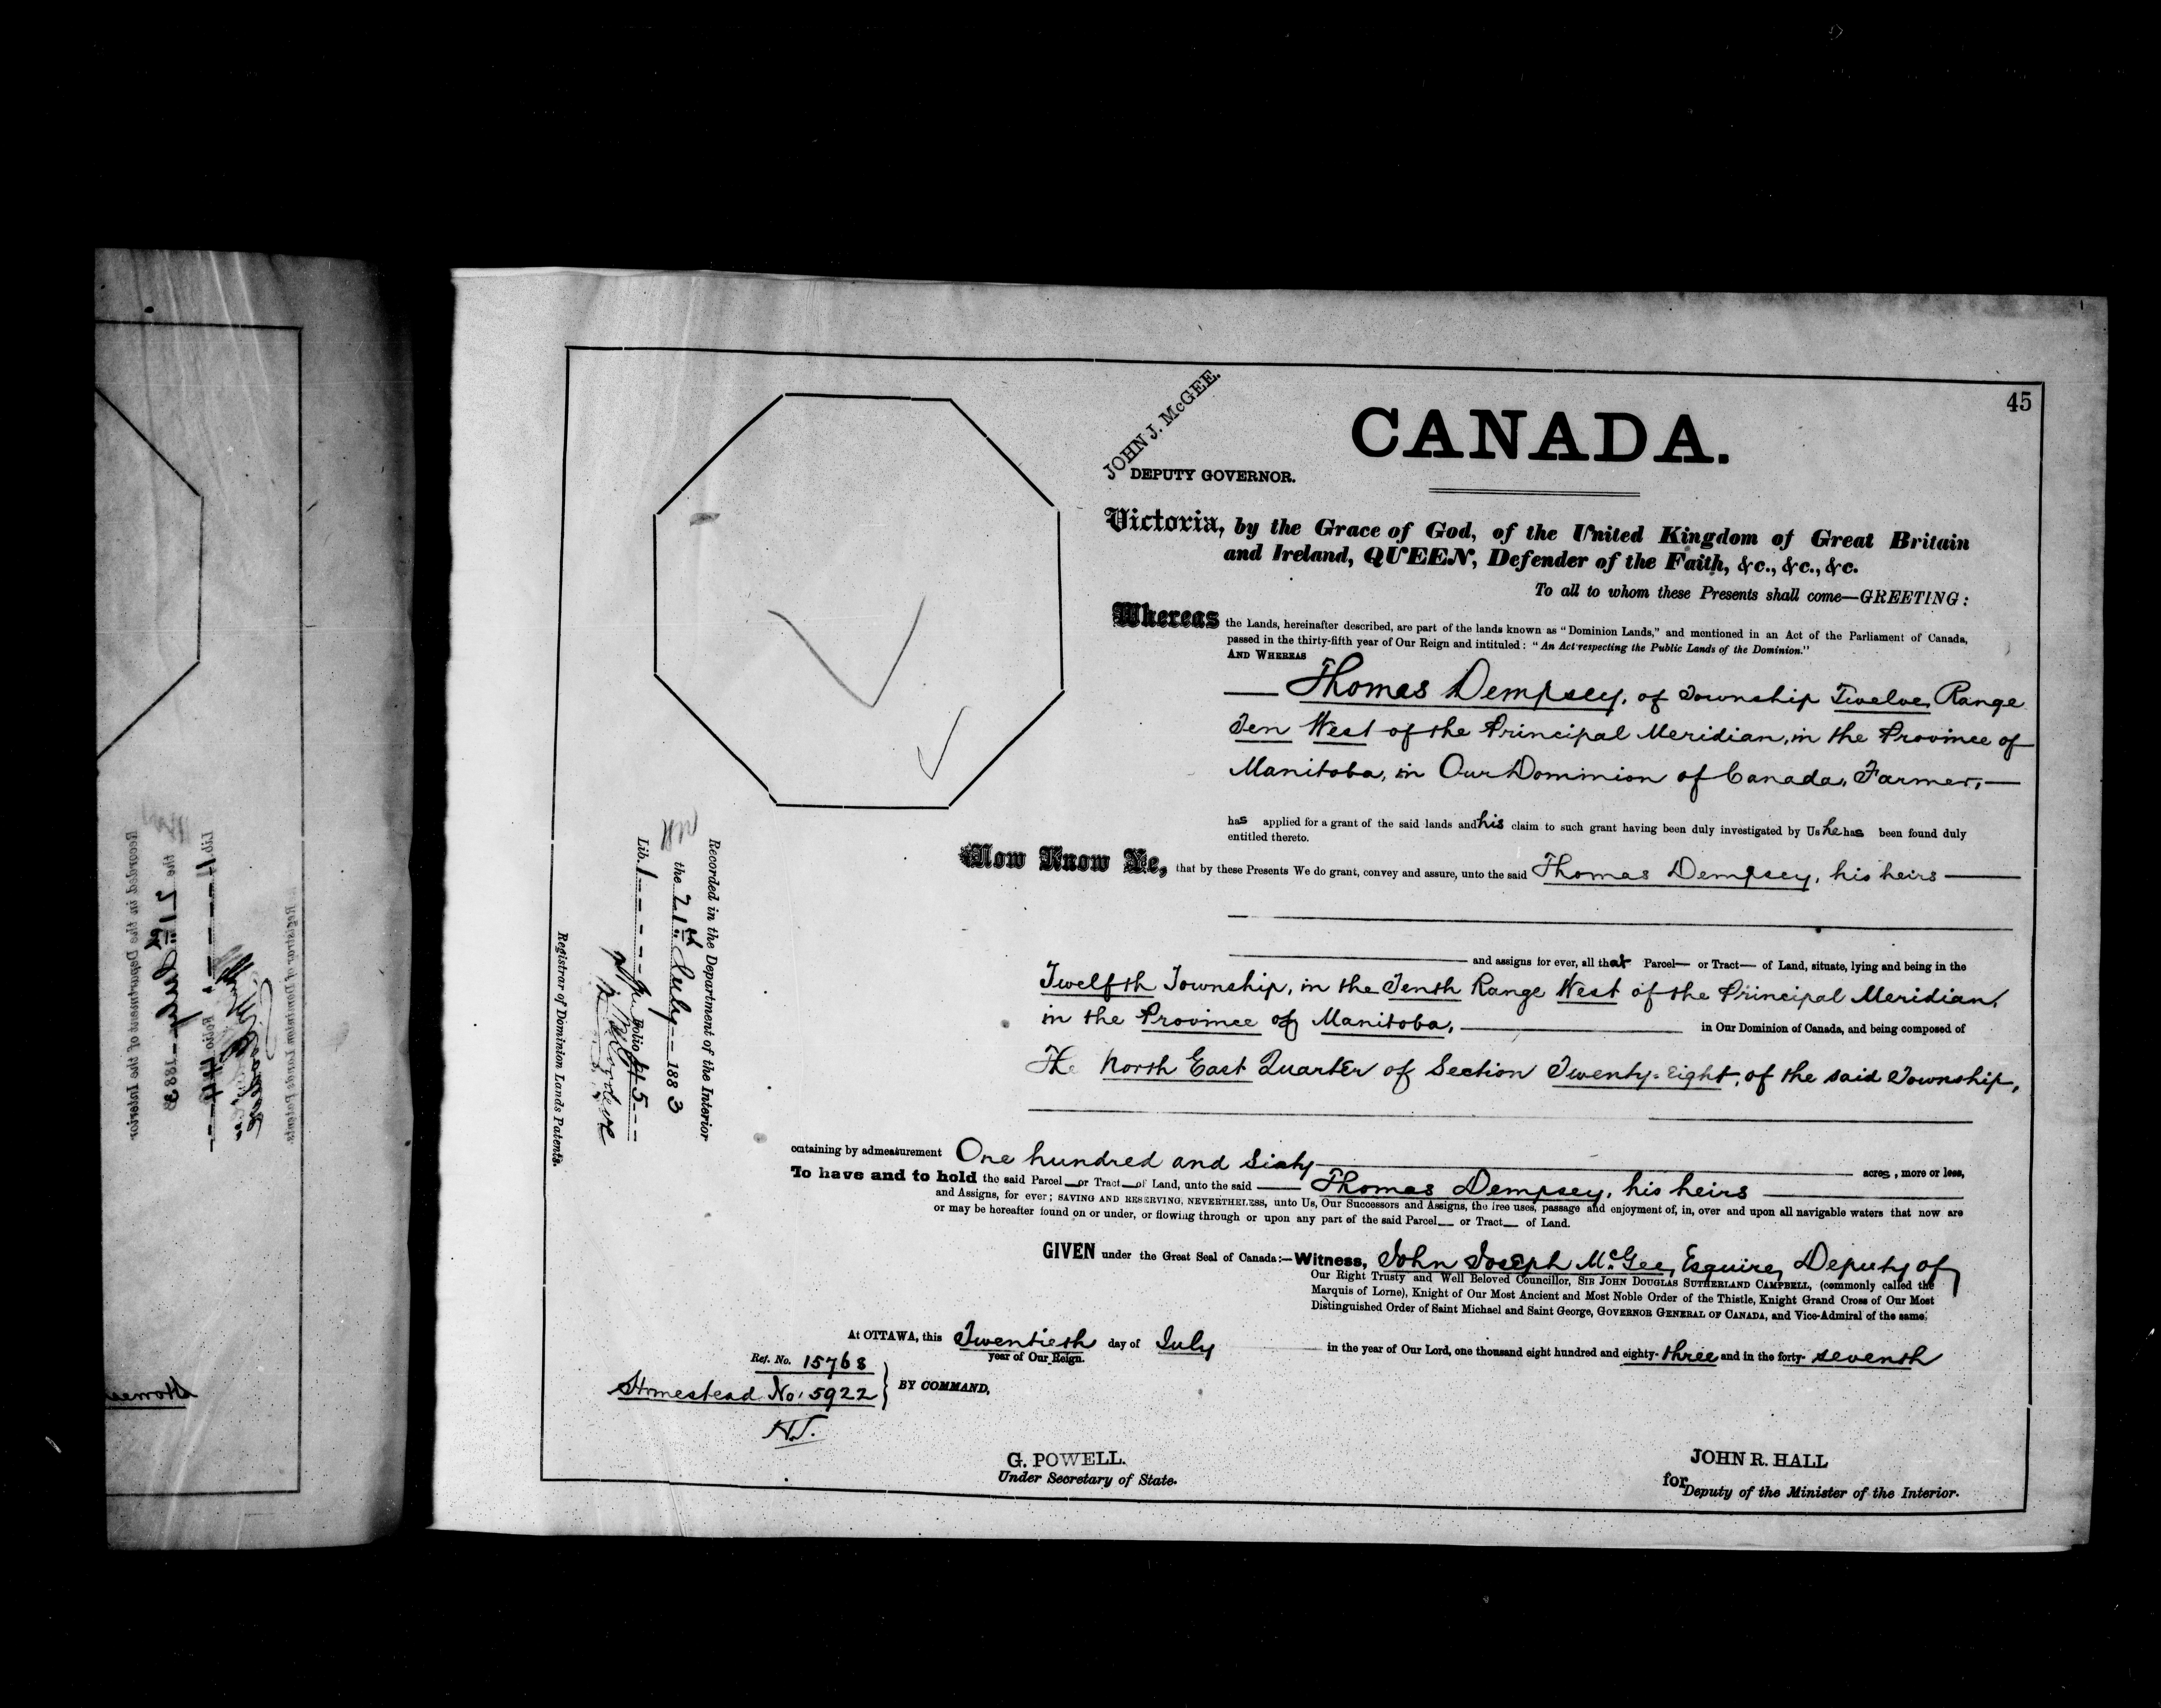 45
JOHN J. McGEE.
DEPUTY GOVERNOR.
CANADA.
Victoria, by the Grace of God, of the United Kingdom of Great Britain
and Ireland, QUEEN, Defender of the Faith, &c., &c., &c.
To all to whom these Presents shall come—GREETING:
Whereas the Lands, hereinafter described, are part of the lands known as "Dominion Lands," and mentioned in an Act of the Parliament of Canada,
passed in the thirty-fifth year of Our Reign and intituled: "An Act respecting the Public Lands of the Dominion."
AND WHEREAS
Thomas Dempsey, of Township Twelve, Range
Ten West of the Principal Meridian, in the Province of
Manitoba, in Our Dominion of Canada, Farmer,—
has applied for a grant of the said lands and his claim to such grant having been duly investigated by Us he has been found duly
entitled thereto.
Now Know Ye, that by these Presents We do grant, convey and assure, unto the said Thomas Dempsey, his heirs
and assigns for ever, all that Parcel— or Tract— of Land, situate, lying and being in the
Twelfth Township, in the Tenth Range West of the Principal Meridian,
in the Province of Manitoba, in Our Dominion of Canada, and being composed of
The North East Quarter of Section Twenty-Eight, of the said Township,
ontaining by admeasurement One hundred and Sixty acres, more or less,
To have and to hold the said Parcel or Tract of Land, unto the said Thomas Dempsey, his heirs
and Assigns, for ever; SAVING AND RESERVING, NEVERTHELESS, unto Us, Our Successors and Assigns, the free uses, passage and enjoyment of, in, over and upon all navigable waters that now are
or may be hereafter found on or under, or flowing through or upon any part of the said Parcel or Tract of Land.
GIVEN under the Great Seal of Canada:—Witness, John Joseph McGee, Esquire, Deputy of
Our Right Trusty and Well Beloved Councillor, SIR JOHN DOUGLAS SUTHERLAND CAMPBELL, (commonly called the
Marquis of Lorne), Knight of Our Most Ancient and Most Noble Order of the Thistle, Knight Grand Cross of Our Most
Distinguished Order of Saint Michael and Saint George, GOVERNOR GENERAL OF CANADA, and Vice-Admiral of the same.
At OTTAWA, this Twentieth day of July in the year of Our Lord, one thousand eight hundred and eighty-three and in the forty-seventh
year of Our Reign.
Ref. No. 15768
Homestead No. 5922
BY COMMAND,
H.J.
G. POWELL.
Under Secretary of State.
JOHN R. HALL
for Deputy of the Minister of the Interior.
Recorded in the Department of the Interior
the 21st July 1883
Lib. 1 Folio 45
Registrar of Dominion Lands Patents.